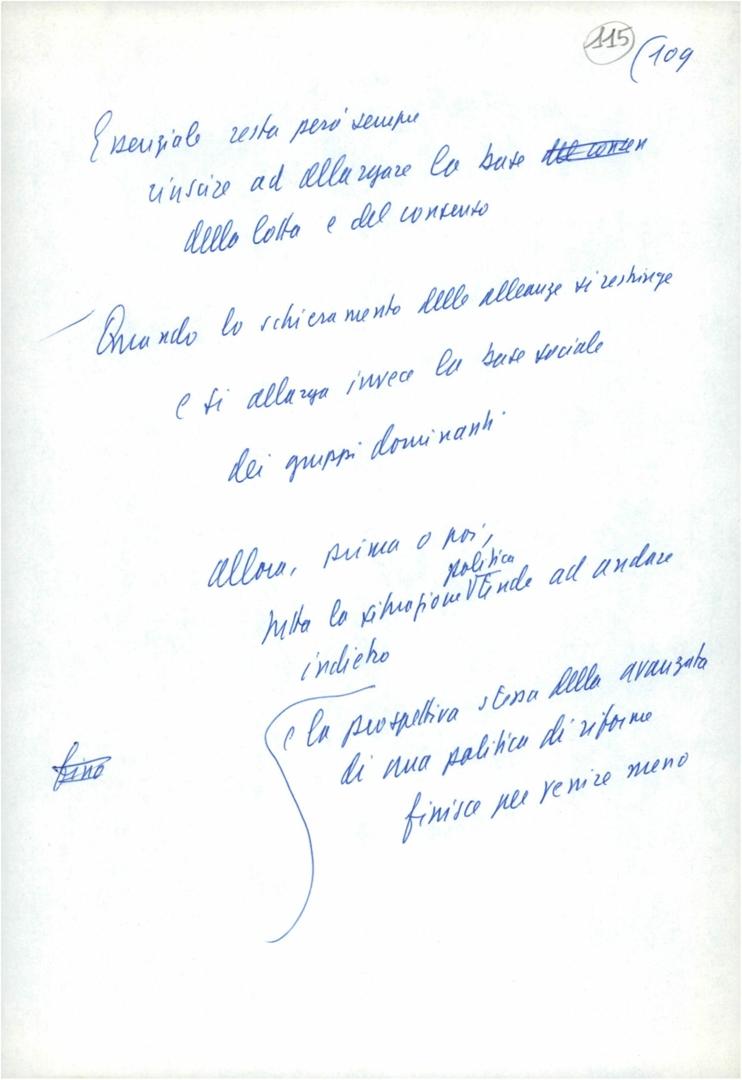 115 (109
Essenziale resta però sempre
riuscire ad allargare la base del consen
della lotta e del consenso
Quando lo schieramento delle alleanze si restringe
e si allarga invece la base sociale
dei gruppi dominanti
allora, prima o poi,
politica
tutta la situazione tende ad andare
indietro
e la prospettiva stessa della avanzata
di una politica di riforme
fino
finisce per venire meno